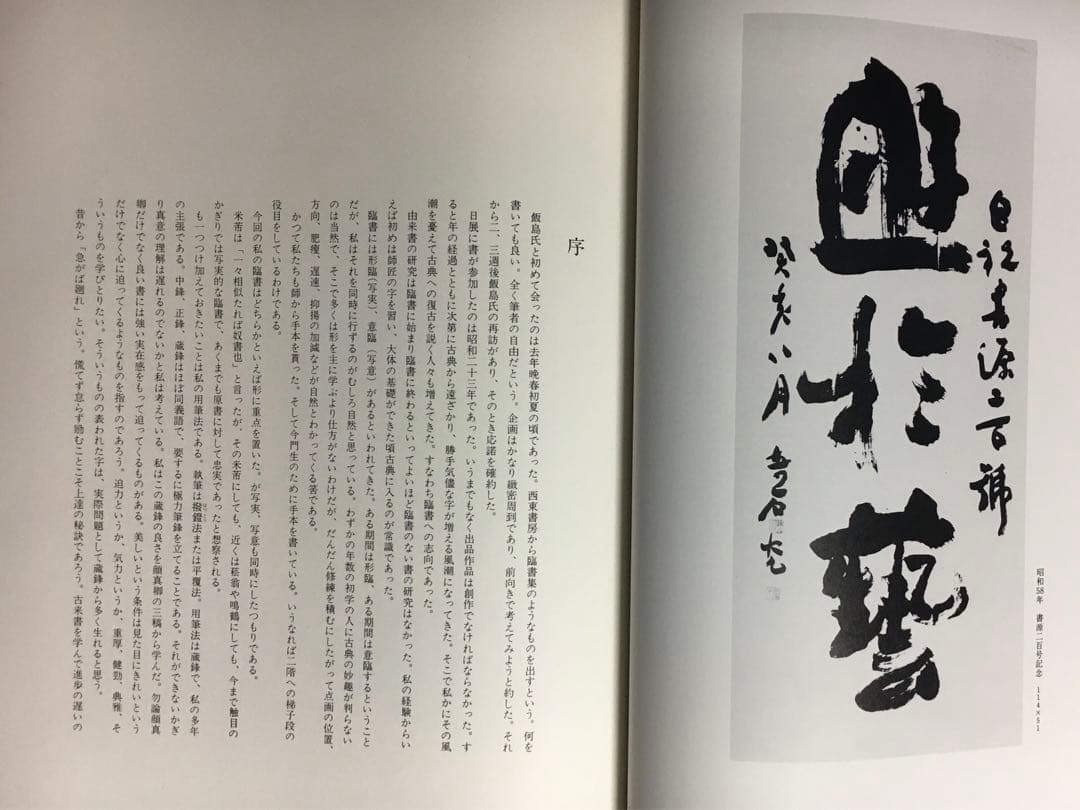 自祝書源二百號
於藝
癸亥八月
昭和58年 書源二百号記念 114×51
序
飯島氏と初めて会ったのは去年晩春初夏の頃であった。西東書房から臨書集のようなものを出すという。何を
書いても良い。全く筆者の自由だという。企画はかなり緻密周到であり、前向きで考えてみようと約した。それ
から二、三週後飯島氏の再訪があり、そのとき応諾を確約した。
日展に書が参加したのは昭和二十三年であった。いうまでもなく出品作品は創作でなければならなかった。す
ると年の経過とともに次第に古典から遠ざかり、勝手気儘な字が増える風潮になってきた。そこで私かにその風
潮を憂えて古典への復古を説く人々も増えてきた。すなわち臨書への志向であった。
由来書の研究は臨書に始まり臨書に終わるといってよいほど臨書のない書の研究はなかった。私の経験からい
えば初めは師匠の字を習い、大体の基礎ができた頃古典に入るのが常識であった。
臨書には形臨（写実）、意臨（写意）があるといわれてきた。ある期間は形臨、ある期間は意臨するということ
だが、私はそれを同時に行ずるのがむしろ自然と思っている。わずかの年数の初学の人に古典の妙趣が判らない
のは当然で、そこで多くは形を主に学ぶより仕方がないわけだが、だんだん修練を積むにしたがって点画の位置、
方向、肥痩、遅速、抑揚の加減などが自然とわかってくる筈である。
かつて私たちも師から手本を貰った。そして今門生のために手本を書いている。いうなれば二階への梯子段の
役目をしているわけである。
今回の私の臨書はどちらかといえば形に重点を置いた。が写実、写意も同時にしたつもりである。
米芾は「一々相似たれば奴書也」と言ったが、その米芾にしても、近くは菘翁や鳴鶴にしても、今まで触目の
かぎりでは写実的な臨書で、あくまでも原書に対して忠実であったと想察される。
も一つつけ加えておきたいことは私の用筆法である。執筆は撥鐙法または平覆法。用筆法は蔵鋒で、私の多年
の主張である。中鋒、正鋒、蔵鋒はほぼ同義語で、要するに極力筆鋒を立てることである。それができないかぎ
り真意の理解は遅れるのでないかと私は考えている。私はこの蔵鋒の良さを顔真卿の三稿から学んだ。勿論顔真
卿だけでなく良い書には強い実在感をもって迫ってくるものがある。美しいという条件は見た目にきれいという
だけでなく心に迫ってくるようなものを指すのであろう。迫力というか、気力というか、重厚、健勁、典雅、そ
ういうものを学びとりたい。そういうものの表われた字は、実際問題として蔵鋒から多く生れると思う。
昔から「急がば廻れ」という。慌てず怠らず励むことこそ上達の秘訣であろう。古来書を学んで進歩の遅いの